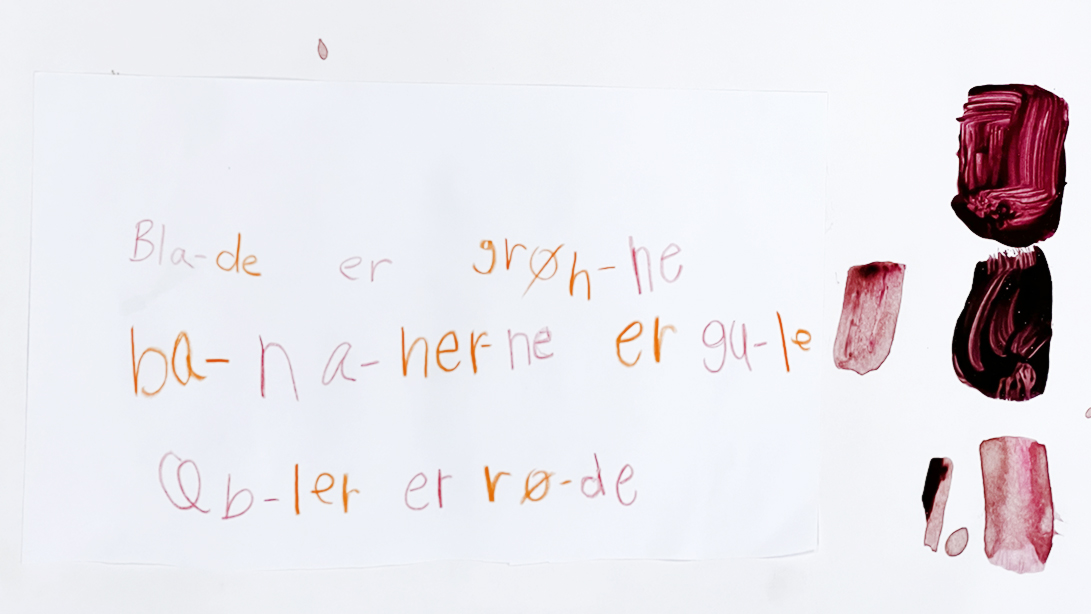 Bla-de er grøn-ne
ba-na-ner-ne er gu-le
Æb-ler er rø-de